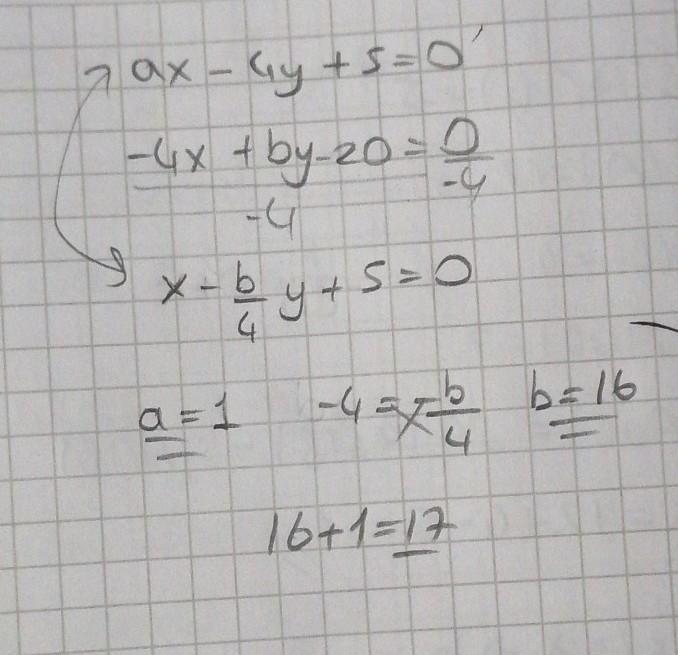 ax - 4y + 5 = 0
-4x + by - 20 = 0
-4 -4
x - b/4 y + 5 = 0
a = 1 -4 = -b/4 b = 16
16 + 1 = 17